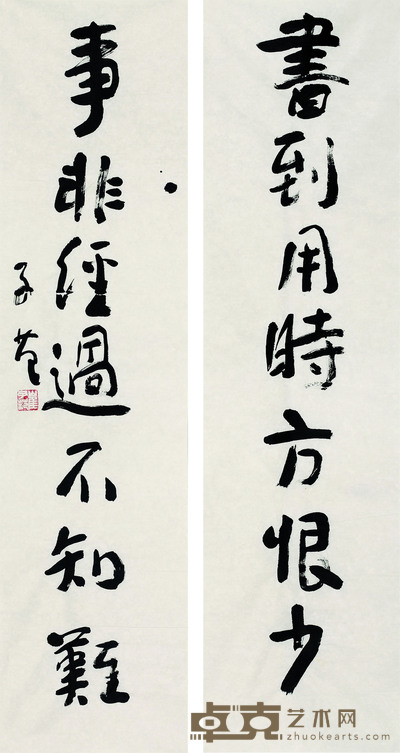 書到用時方恨少
事非經過不知難
卓克艺术网
zhuokearts.com